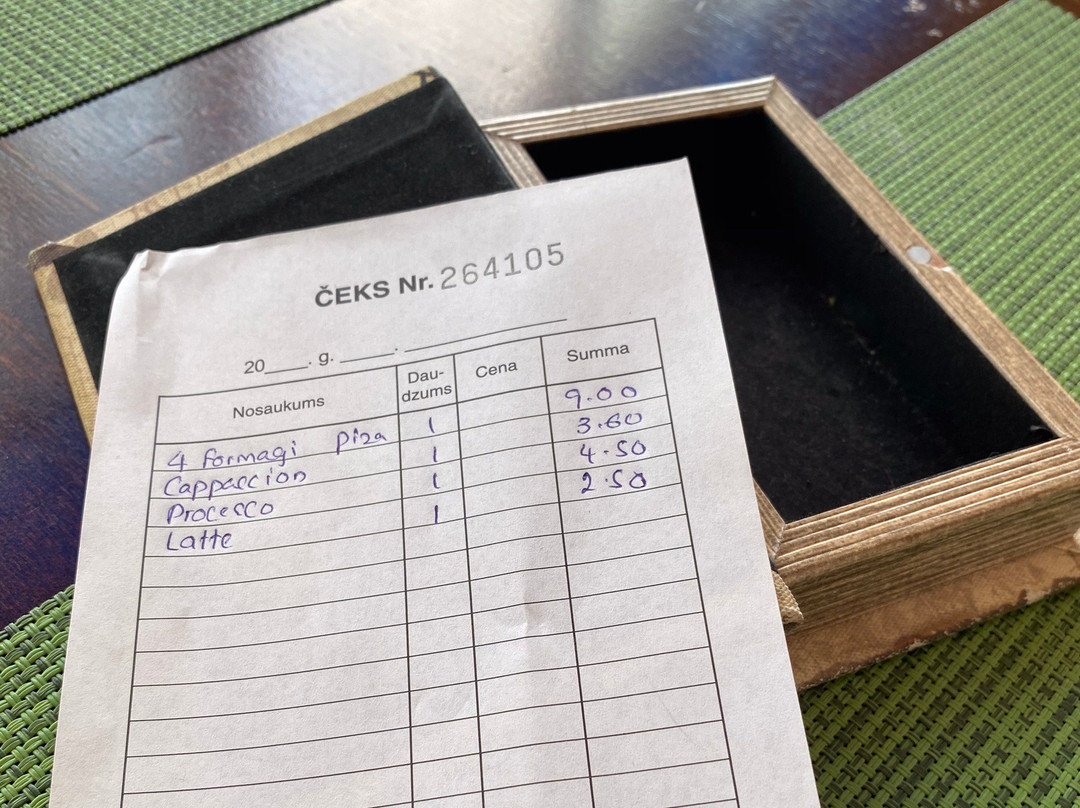 ČEKS Nr. 264105
20____. g. _____. ____________
Nosaukums Dau-dzums Cena Summa
4 formagi piza 1 9.00
Cappaccion 1 3.60
Procecco 1 4.50
Latte 1 2.50